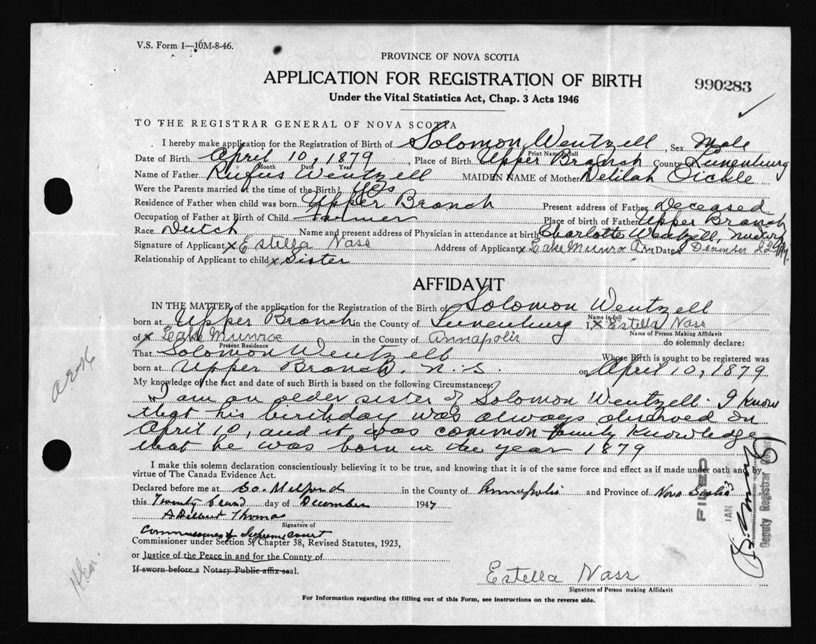 V.S. Form 1—10M-8-46.
PROVINCE OF NOVA SCOTIA
APPLICATION FOR REGISTRATION OF BIRTH
990283
Under the Vital Statistics Act, Chap. 3 Acts 1946
TO THE REGISTRAR GENERAL OF NOVA SCOTIA
I hereby make application for the Registration of Birth of Solomon Wentzell, Sex Male
Print Name in full
Date of Birth April 10, 1879, Place of Birth Upper Branch County Lunenburg
Month Date Year
Name of Father Rufus Wentzell MAIDEN NAME of Mother Delilah Oickle
Were the Parents married at the time of the Birth? Yes
Residence of Father when child was born Upper Branch Present address of Father Deceased
Occupation of Father at Birth of Child Farmer Place of birth of Father Upper Branch
Race Dutch Name and present address of Physician in attendance at birth Charlotte Wentzell,
Signature of Applicant x Estella Nass Address of Applicant x Lake Munro Date December 22
Relationship of Applicant to child x Sister
AFFIDAVIT
IN THE MATTER of the application for the Registration of the Birth of Solomon Wentzell
Name in full
born at Upper Branch in the County of Lunenburg I, x Estella Nass
Name of Person Making Affidavit
of x Lake Munroe in the County of Annapolis do solemnly declare:
Present Residence
That Solomon Wentzell Whose Birth is sought to be registered was
born at Upper Branch, N.S. on April 10, 1879
My knowledge of the fact and date of such Birth is based on the following Circumstances:
I am an older sister of Solomon Wentzell. I know
that his birthday was always observed on
April 10, and it was common family knowledge
that he was born in the year 1879
I make this solemn declaration conscientiously believing it to be true, and knowing that it is of the same force and effect as if made under oath and by
virtue of The Canada Evidence Act.
Declared before me at So. Milford in the County of Annapolis and Province of Nova Scotia
this Twenty second day of December 1947
Adelbert Thomas
Signature of
Commissioner of Supreme Court
Commissioner under Section 5, Chapter 38, Revised Statutes, 1923,
or Justice of the Peace in and for the County of
If sworn before a Notary Public affix seal.
Estella Nass
Signature of Person making Affidavit
For Information regarding the filling out of this Form, see instructions on the reverse side.
FILED
JAN
Deputy Registrar General